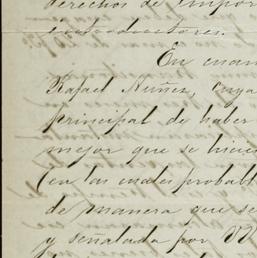 derechos de impor
introductores.
En cuan
Rafael Nuñez, cuya
principal de haber
mejor que se hicie
(en las cuales probabl
de manera que se
y señalada por